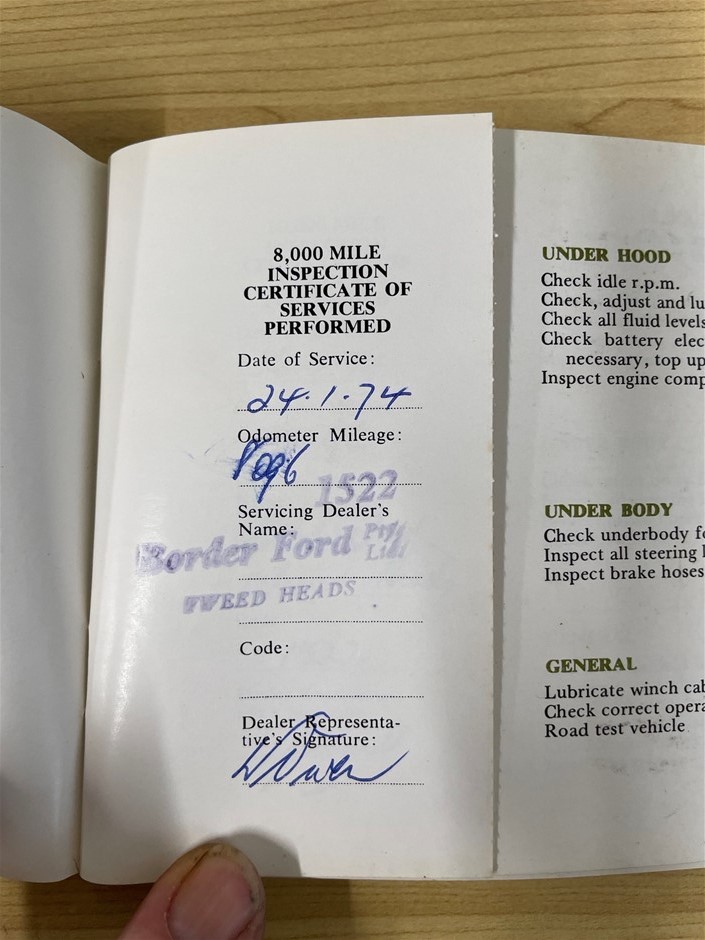 8,000 MILE
INSPECTION
CERTIFICATE OF
SERVICES
PERFORMED
Date of Service:
24.1.74
Odometer Mileage:
1522
Servicing Dealer's
Name:
Border Ford Pty
Ltd.
TWEED HEADS
Code:
Dealer Representa-
tive's Signature:
UNDER HOOD
Check idle r.p.m.
Check, adjust and lu
Check all fluid levels
Check battery elec
necessary, top up
Inspect engine comp
UNDER BODY
Check underbody fo
Inspect all steering l
Inspect brake hoses
GENERAL
Lubricate winch cab
Check correct opera
Road test vehicle